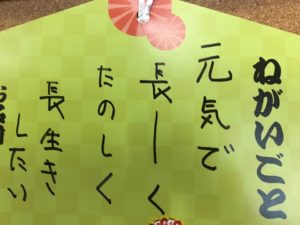 ねがいごと
元気で
長ーく
たのしく
長生き
したい